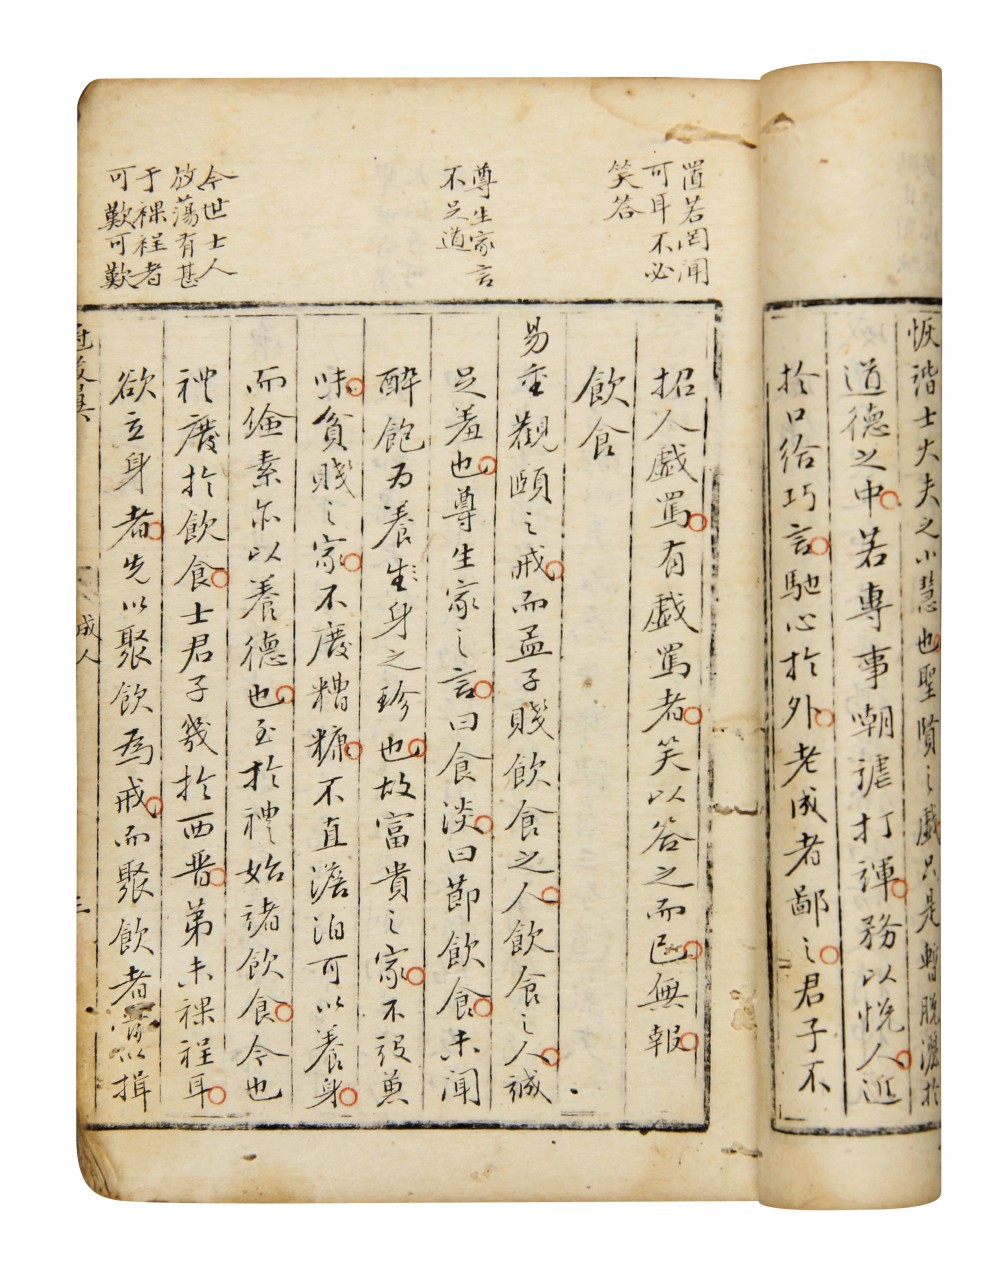 恢諧士大夫之小慧也聖賢之戲只是暫脫灑於
道德之中若專事嘲謔打諢務以悅人近
於口給巧言馳心於外老成者鄙之君子不
置若罔聞
可耳不必
笑答
招人戲罵有戲罵者笑以答之而已無報
飲食
易垂觀頤之戒而孟子賤飲食之人飲食之人誠
尊生家言
不足道
足羞也尊生家之言曰食淡曰節飲食未聞
醉飽為養生身之珍也故富貴之家不祋兼
味貧賤之家不廢糟糠不直澹泊可以養身
而儉素亦以養德也至於禮始諸飲食今也
今世士人
放蕩有甚
于裸裎者
可歎可歎
禮廢於飲食士君子幾於西晉第未裸裎耳
欲立身者先以聚飲為戒而聚飲者當以揖
成人